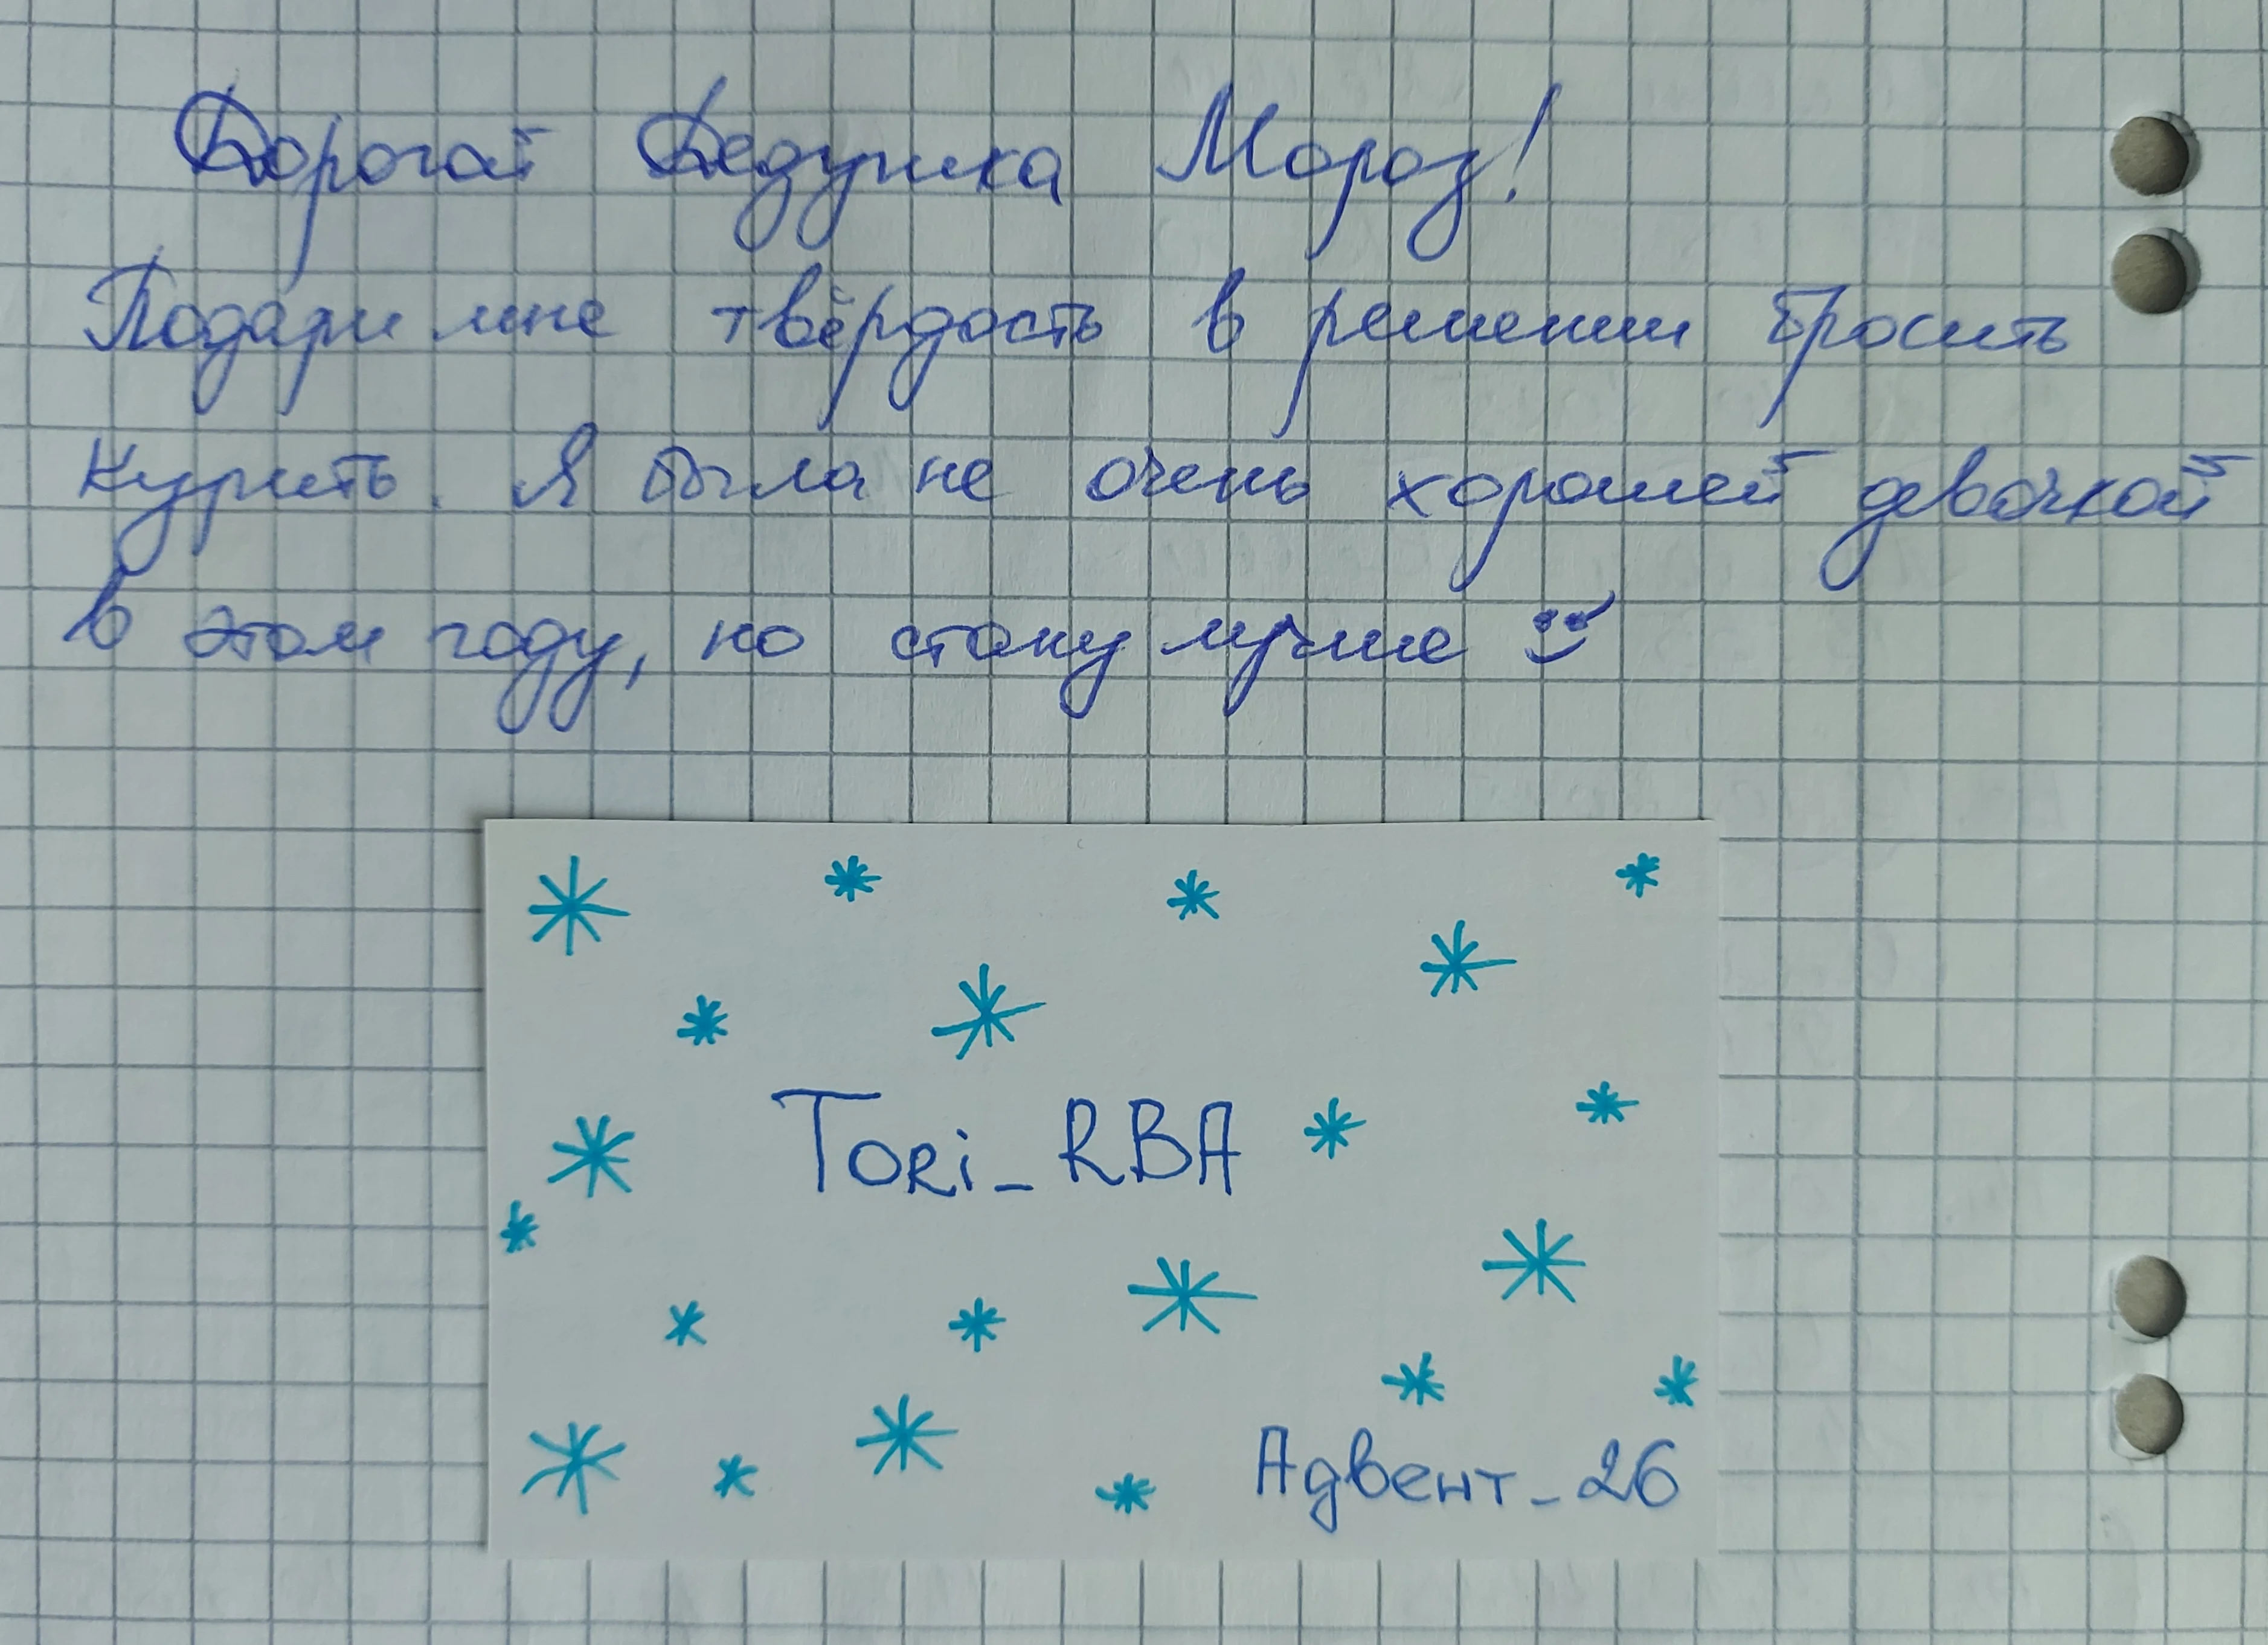 Дорогой Дедушка Мороз!
Подари мне твёрдость в решении бросить
курить. Я была не очень хорошей девочкой
в этом году, но стану лучше
Tori_RBA
Адвент_26